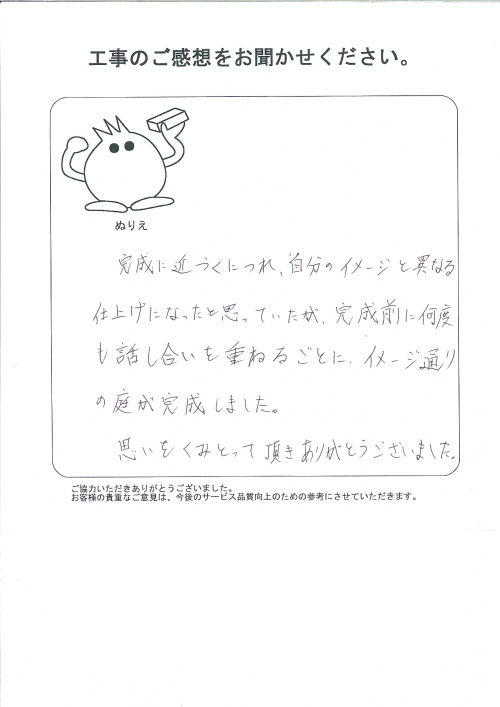 工事のご感想をお聞かせください。
ぬりえ
完成に近づくにつれ、自分のイメージと異なる
仕上げになったと思っていたが、完成前に何度
も話し合いを重ねるごとに、イメージ通り
の庭が完成しました。
思いをくみとって頂きありがとうございました。
ご協力いただきありがとうございました。
お客様の貴重なご意見は、今後のサービス品質向上のための参考にさせていただきます。